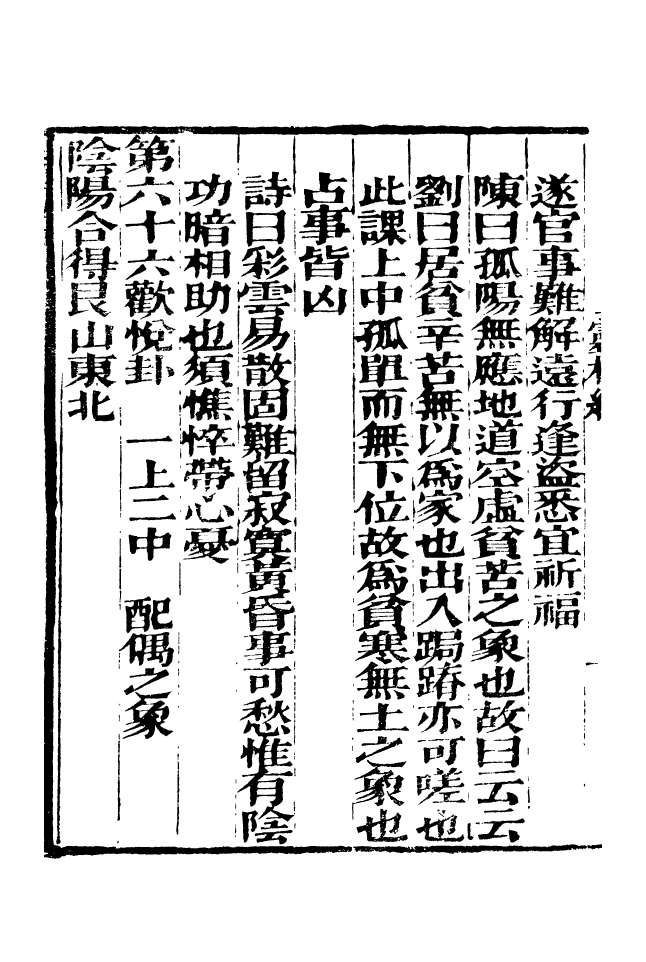 遂官事難解遠行逢盜悉宜祈福
陳曰孤陽無應地道空虛貧苦之象也故曰云云
劉曰居貧辛苦無以爲家也出入跼蹐亦可嗟也
此課上中孤單而無下位故爲貧寒無土之象也
占事皆凶
詩曰彩雲易散固難留寂寞黃昏事可愁惟有陰
功暗相助也須憔悴帶心憂
第六十六歡悅卦　一上二中　配偶之象
陰陽合得艮山東北